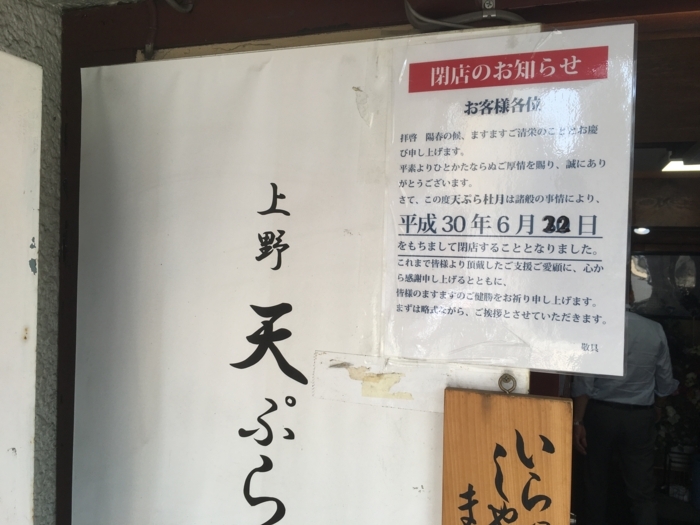 閉店のお知らせ
お客様各位
拝啓　陽春の候、ますますご清栄のこととお慶
び申し上げます。
平素よりひとかたならぬご厚情を賜り、誠にあり
がとうございます。
さて、この度天ぷら杜月は諸般の事情により、
平成30年6月22日
をもちまして閉店することとなりました。
これまで皆様より頂戴したご支援ご愛顧に、心か
ら感謝申し上げるとともに、
皆様のますますのご健勝をお祈り申し上げます。
まずは略式ながら、ご挨拶とさせていただきます。
敬具
上野
天ぷら
いら
しゃ
ま